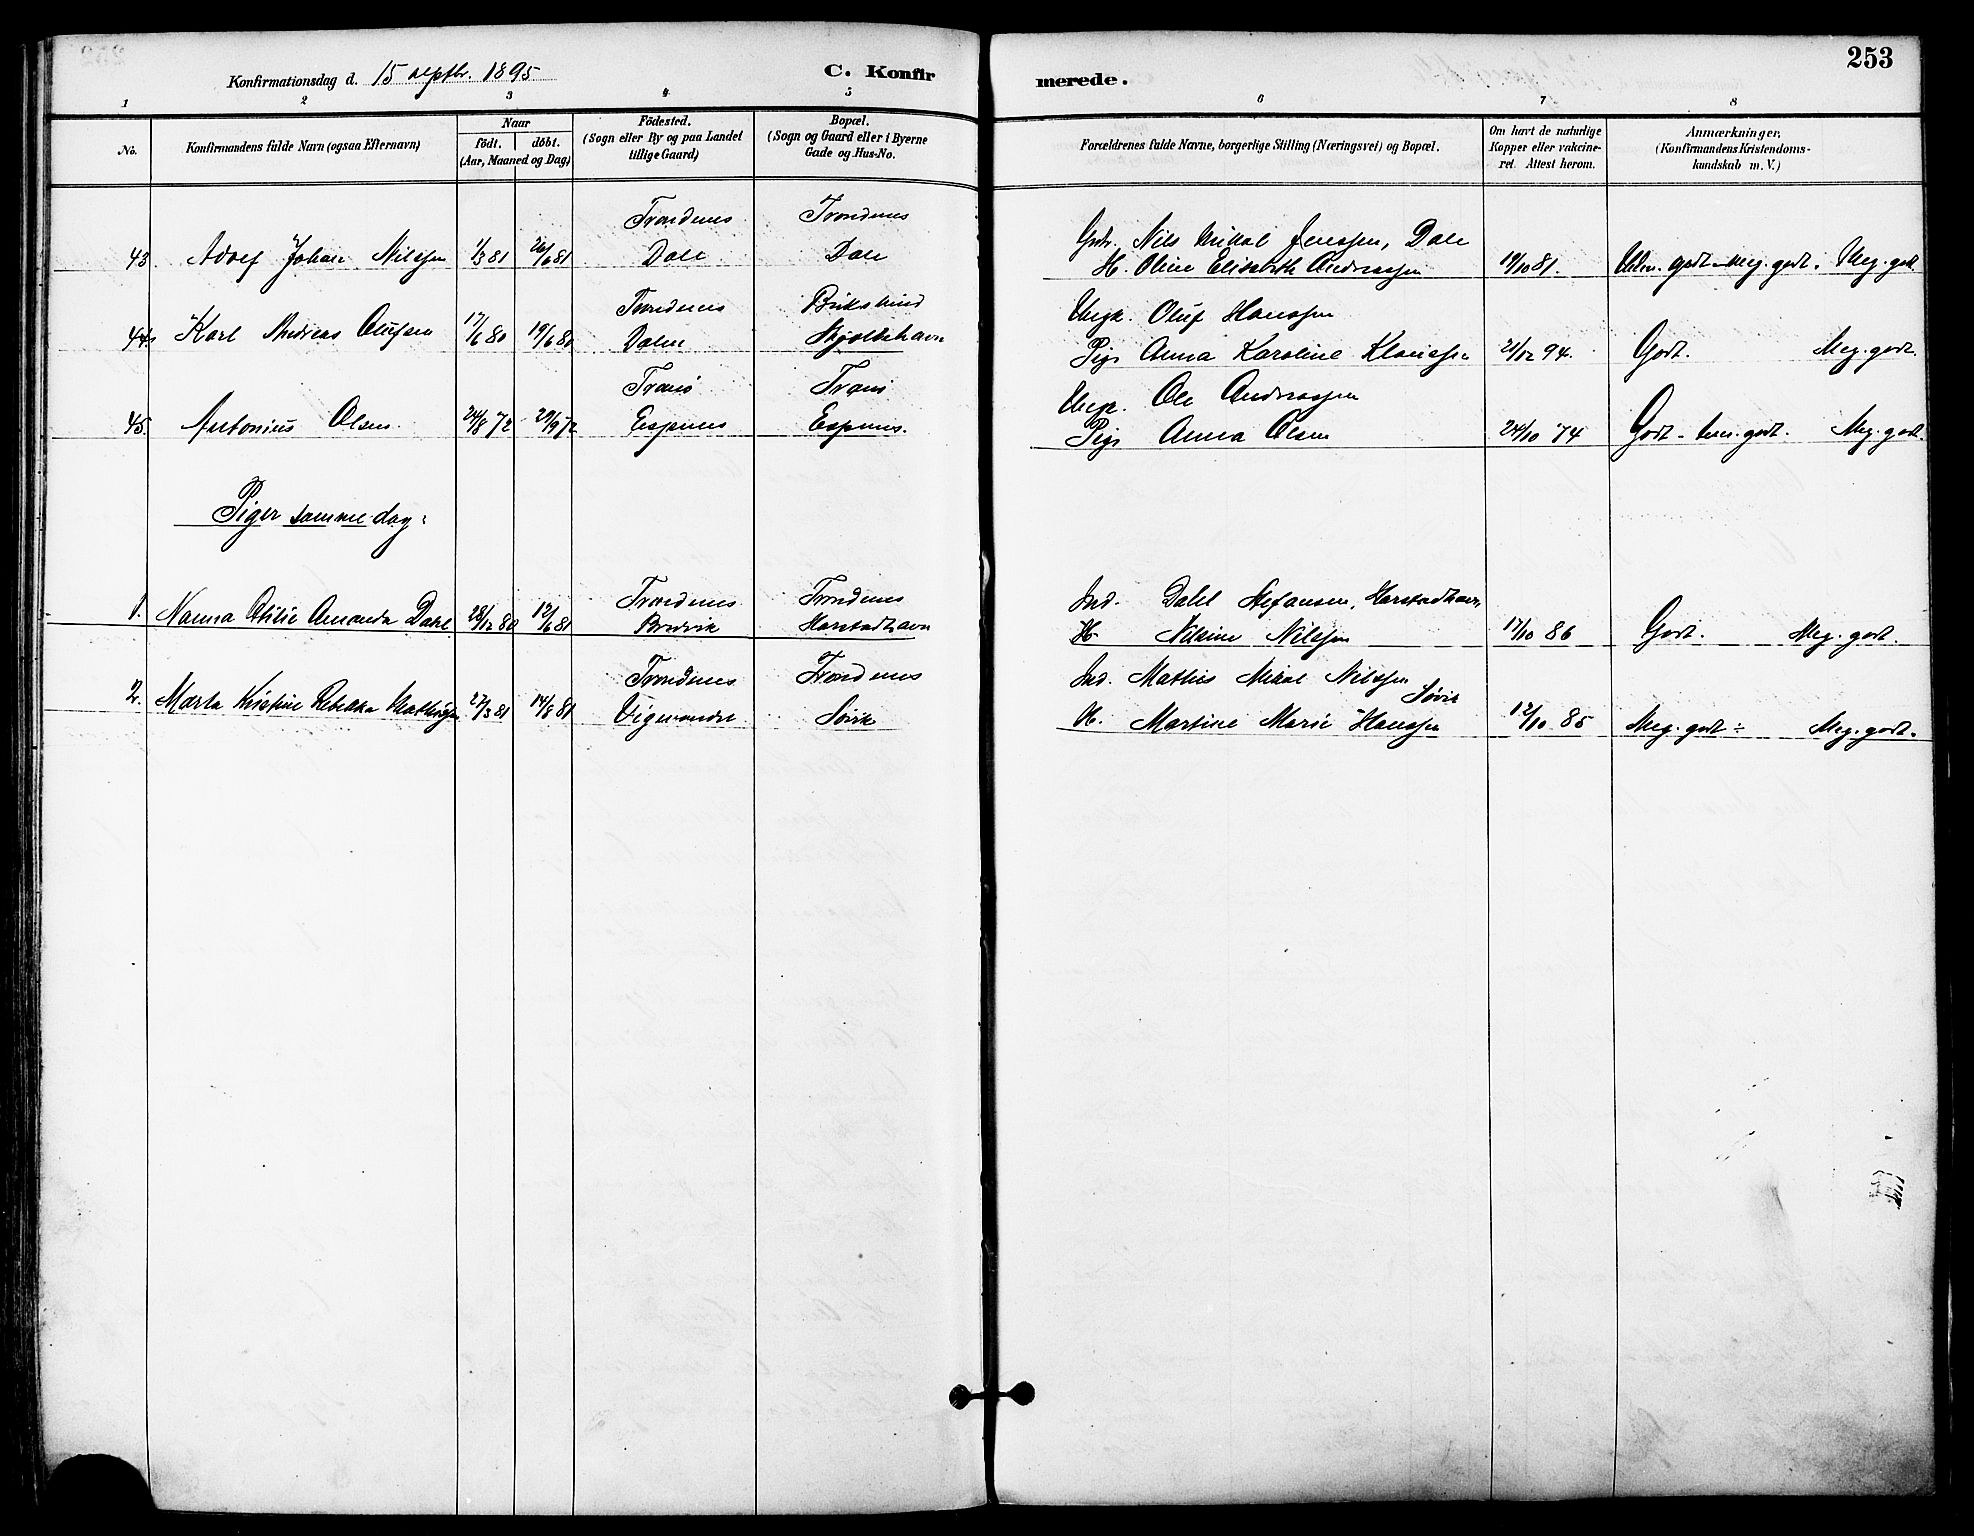 253
Konfirmationsdag d. 15 septbr. 1895
C. Konfirmerede.
1 2 3 4 5 6 7 8
No.
Konfirmandens fulde Navn (ogsaa Efternavn)
Naar
födt. döbt.
(Aar, Maaned og Dag)
Födested.
(Sogn eller By og paa Landet
tillige Gaard)
Bopæl.
(Sogn og Gaard eller i Byerne
Gade og Hus-No.
Forældrenes fulde Navne, borgerlige Stilling (Næringsvei) og Bopæl.
Om havt de naturlige
Kopper eller vakcine-
ret. Attest herom.
Anmærkninger,
(Konfirmandens Kristendoms-
kundskab m. V.)
Trondenes Trondenes Gbr. Nils Mikal Jenssen, Dale
43. Adolf Johan Nilssen 1/3 81 26/6 81 Dale Dale H. Oline Elisabeth Andreassen 19/10 81. godt - meg. godt. Meg. godt
Trondenes Ungk. Oluf Hanssen
44. Karl Andreas Olufsen 17/6 80 19/6 80 Dalen Pige Anna Karoline Klaussen 21/12 94. Godt. Meg. godt.
Tranö Tranö Ungk. Ole Andreassen
45. Antonius Olsen. 24/8 72 29/9 72 Espenes Espenes. Pige Anna Olsen 24/10 74 Godt - godt. Meg. godt.
Piger samme dag:
Trondenes Trondenes Ind. Dahl Stefansen, Harstadhavn,
1. Nanna Otilie Amanda Dahl 28/12 80 12/6 81 Bredvik Harstadhavn H. Nilsine Nilssen 17/10 86 Godt. Meg. godt.
Trondenes Trondenes Ind. Mathis Mikal Nilssen Sövik
2. Marta Kristine Rebekka Mathisen 27/3 81 14/8 81 Sövik H. Martine Marie Hanssen 12/10 85 Meg. godt ÷ Meg. godt.